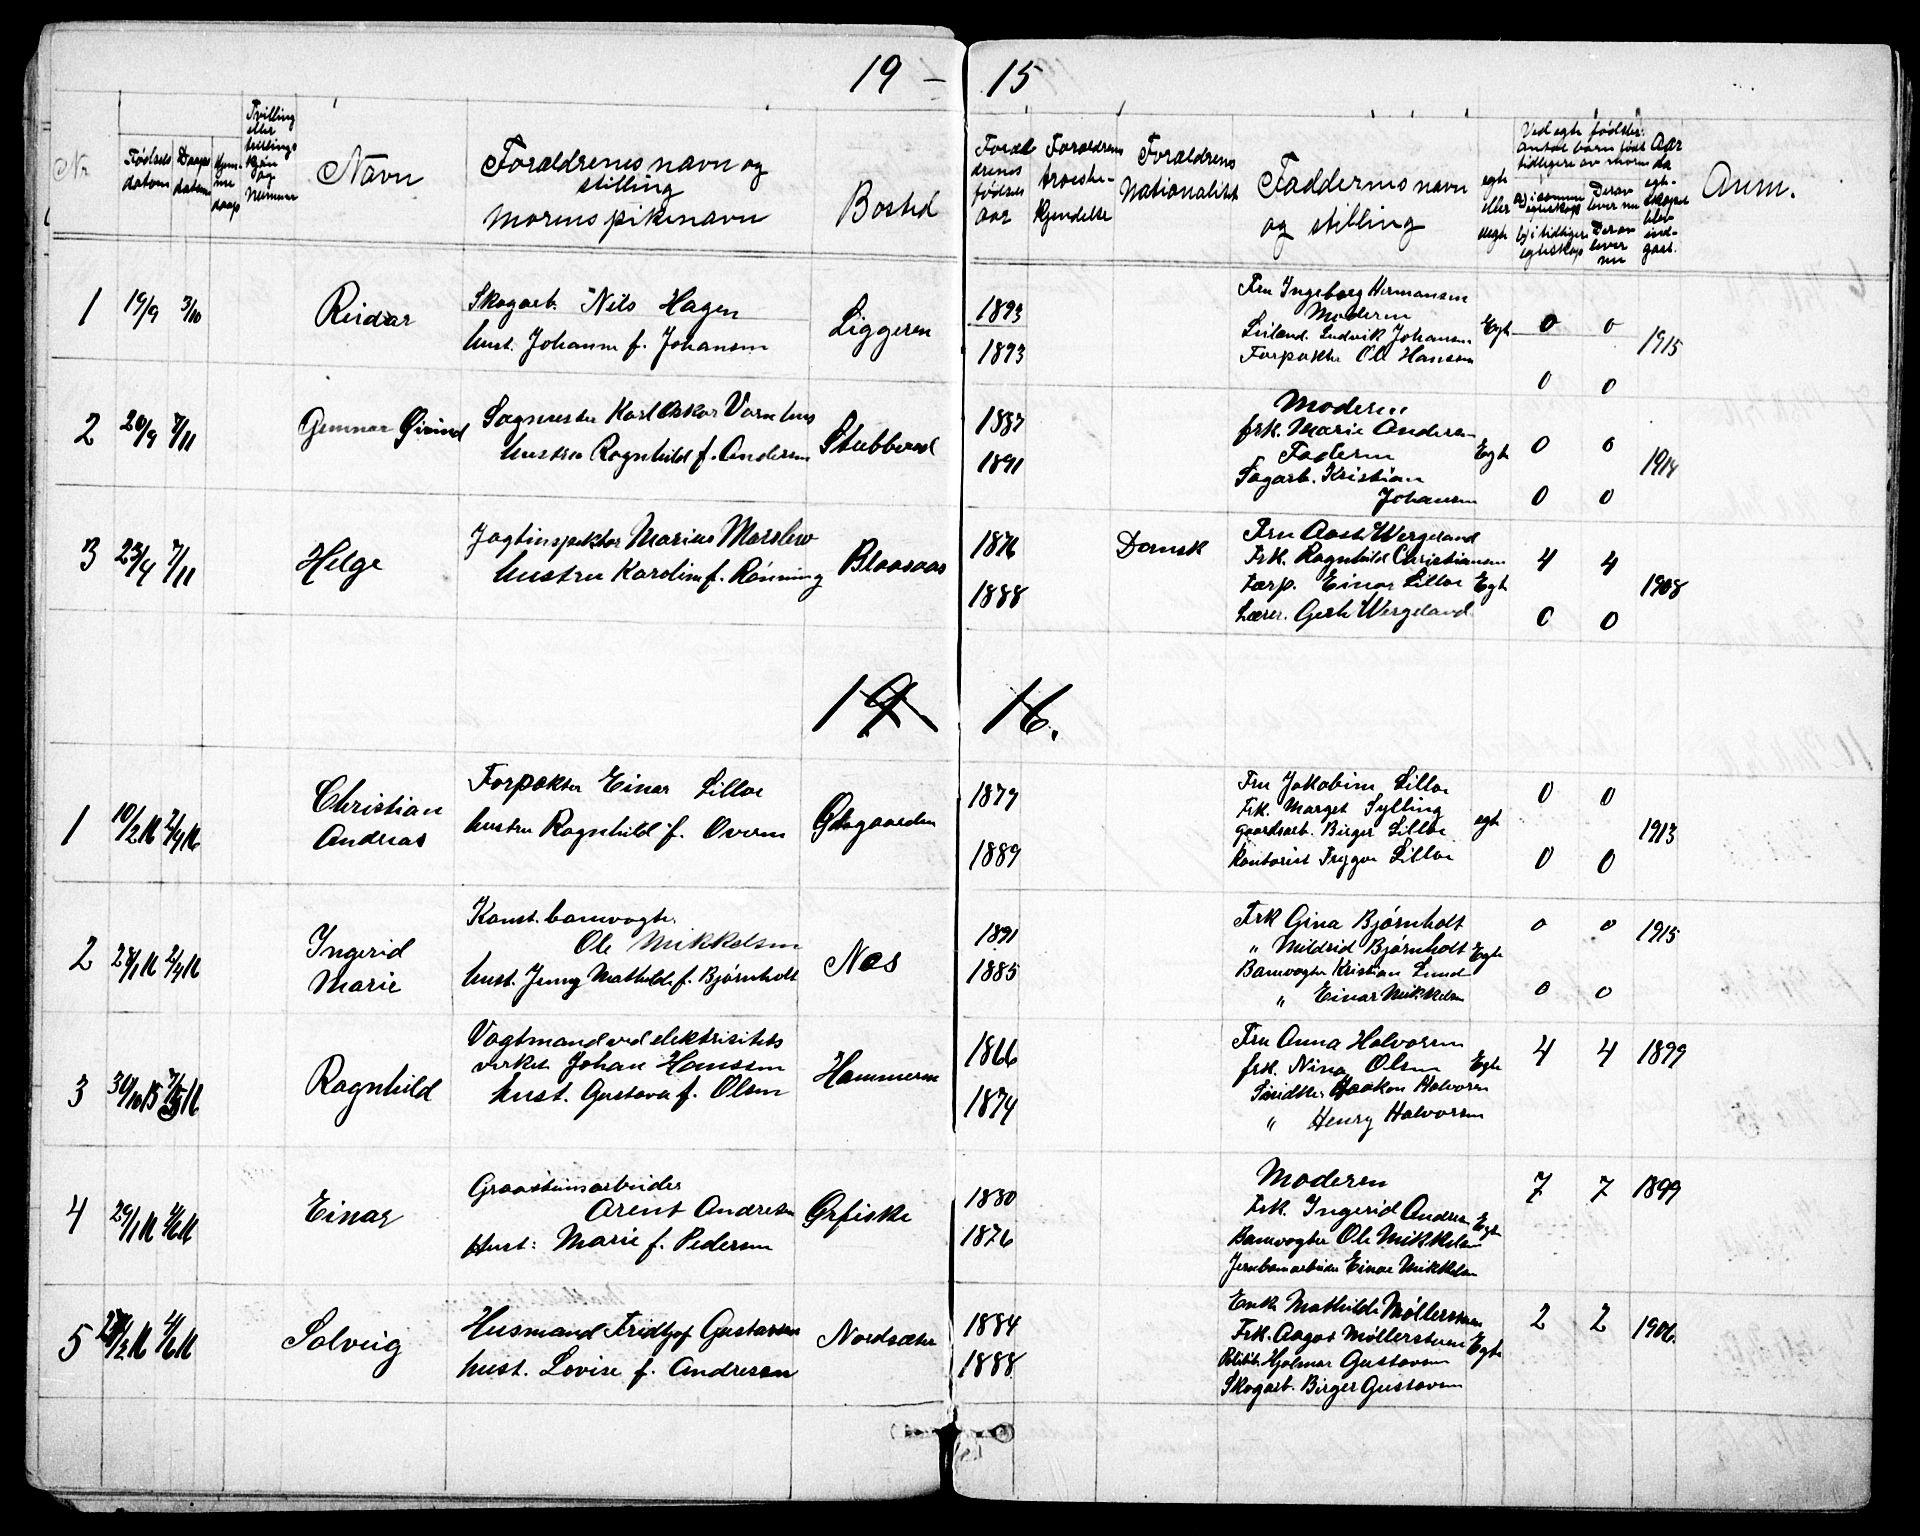 19 – 15
Nr
Fødsels datum
Daaps datum
Hjemmedaap
Tvilling eller trillings Kjøn og Nummer
Navn
Forældrenes navn og
stilling
Morens pikenavn
Bosted
Forældrenes fødsels aar
Forældrenes troesbekjendelse
Forældrenes Nationalitet
Faddernes navn
og stilling
egte eller uegte
Ved egte fødsler:
Antal barn født
tidligere av moren
a) i samme egteskap
Derav lever nu
b) i tidligere egteskap
Derav lever nu
Aar da egteskapet blev indgaat.
Anm.
1 19/9 3/10 Reidar
Skogarb. Nils Hagen
hust. Johanne f. Johansen
Liggeren
1893
1893
Fru Ingeborg Hermansen
Moderen
Ludvik Johansen
Forpakter Ole Hansen
Egte
0 0
0 0
1915
2 20/9 7/11 Gunnar Øivind
Sagmester Karl Oskar Varnehus
hustru Ragnhild f. Andersen
Stubberud
1887
1891
Moderen
frk. Marie Andersen
Faderen
Sagarb. Kristian
Johansen
Egte
0 0
0 0
1914
3 23/4 7/11 Helge
Jagtinspektør Marius Marslew
hustru Karoline f. Rønning
Blaasaas
1876
1888
Dansk
Fru Aasta Wergeland
Frk. Ragnhild Christiansen
Forp. Einar Lilloe
Lærer. Gert Wergeland
Egte
4 4
0 0
1908
19 16.
1 10/2 16 2/4 16 Christian
Andreas
Forpakter Einar Lilloe
hustru Ragnhild f. Overn
1879
1889
Fru Jakobine Lilloe
Frk. Marget Sylling
Gaardsarb. Birger Lilloe
Kontorist Trygve Lilloe
egte
0 0
0 0
1913
2 28/1 16 2/4 16 Ingerid
Marie
Konst. banevogter
Ole Mikkelsen
hust. Jenny Mathilde f. Bjørnholt
Nes
1891
1885
Frk Gina Bjørnholt
" Mildrid Bjørnholt
Banevogter Kristian Lund
" Einar Mikkelsen
Egte
0 0
0 0
1915
3 30/10 15 16 Ragnhild
Vagtmand ved elektrisitets
verket Johan Hanssen
hust. Gustava f. Olsen
Hammeren
1866
1874
Fru Anna Halvorsen
frk. Nina Olsen
Smidker Haakon Halvorsen
" Henry Halvorsen
Egte
4 4 1899
4 29/1 16 4/6 16 Einar
Graastensarbeider
Arent Andresen
Hust: Marie f. Pedersen
Ørfiske
1880
1876
Moderen
Frk. Ingerid Andresen
Banevogter Ole Mikkelsen
Jernbanearbeider Einar Mikkelsen
Egte
7 7 1899
5 16 4/6 16 Solveig
Husmand Fridtjof Gustavsen
hust. Lovise f. Andresen
Nordsæter
1884
1888
Enke Mathilde Møllersteuen
Frk. Aagot Møllersteuen
Politik. Hjalmar Gustavsen
Skogarb. Birger Gustavsen
Egte
2 2 1906